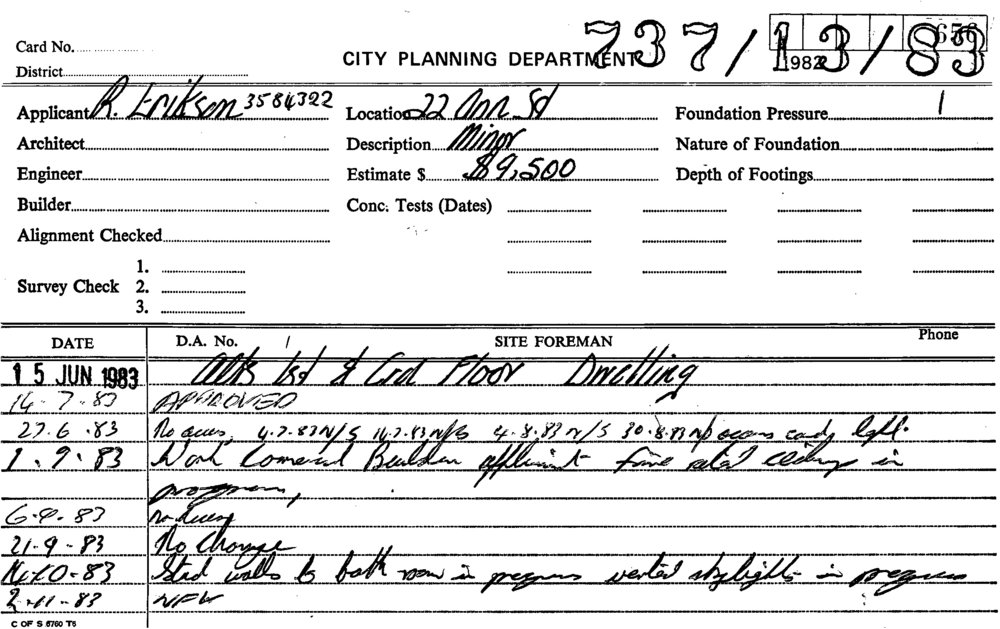 Card No. CITY PLANNING DEPARTMENT 737/13/83
District 1982
Applicant R. Erikson 3584322 Location 22 Ann St Foundation Pressure
Architect Description Minor Nature of Foundation
Engineer Estimate $ $9,500 Depth of Footings
Builder Conc. Tests (Dates)
Alignment Checked
1.
Survey Check 2.
3.
DATE D.A. No. SITE FOREMAN Phone
15 JUN 1983 Alts 1st & Grd Floor Dwelling
14-7-83 APPROVED
27.6.83 No access, 4.7.83 N/S 14.7.83 N/S 4.8.83 N/S 30.8.83 access card left.
1.9.83 Work Builder applicant in
progress,
6-9-83 No access
21-9-83 No Change
Stud walls to bath room in progress skylights in progress
2-11-83 NFW
C OF S 6760 T6